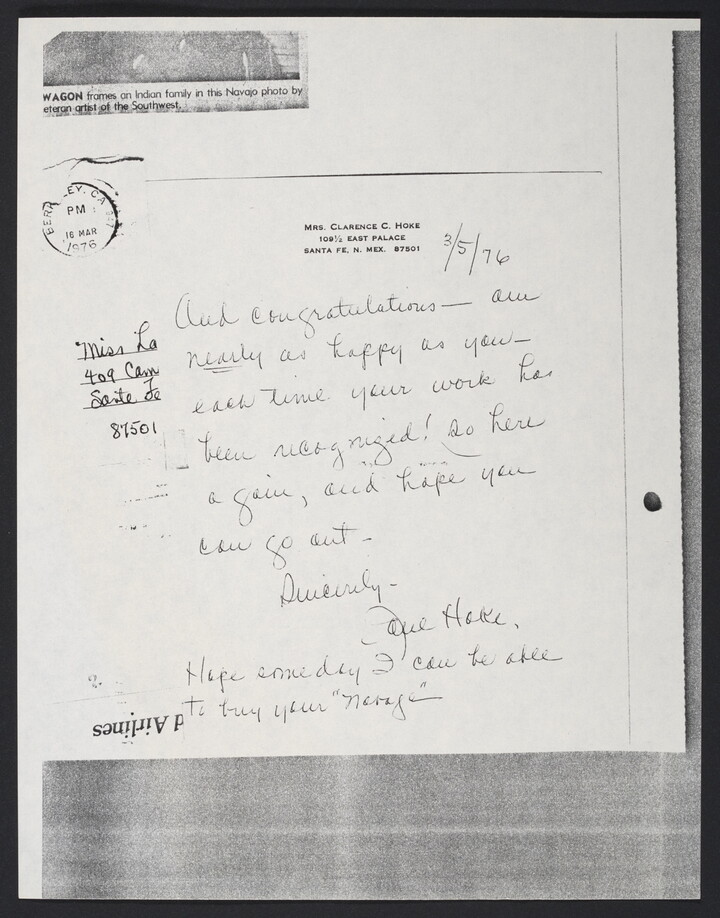 WAGON frames an Indian family in this Navajo photo by
eteran artist of the Southwest.
BERK LEY, CA
PM
16 MAR
1976
MRS. CLARENCE C. HOKE
109½ EAST PALACE
SANTA FE, N. MEX. 87501
3/5/76
Miss La
409 Cam
Santa Fe
87501
And congratulations — am
nearly as happy as you —
each time your work has
been recognized! So here
again, and hope you
can go out —
Sincerely —
Jane Hoke.
Hope someday I can be able
to buy your "Navajo"
d Airlines